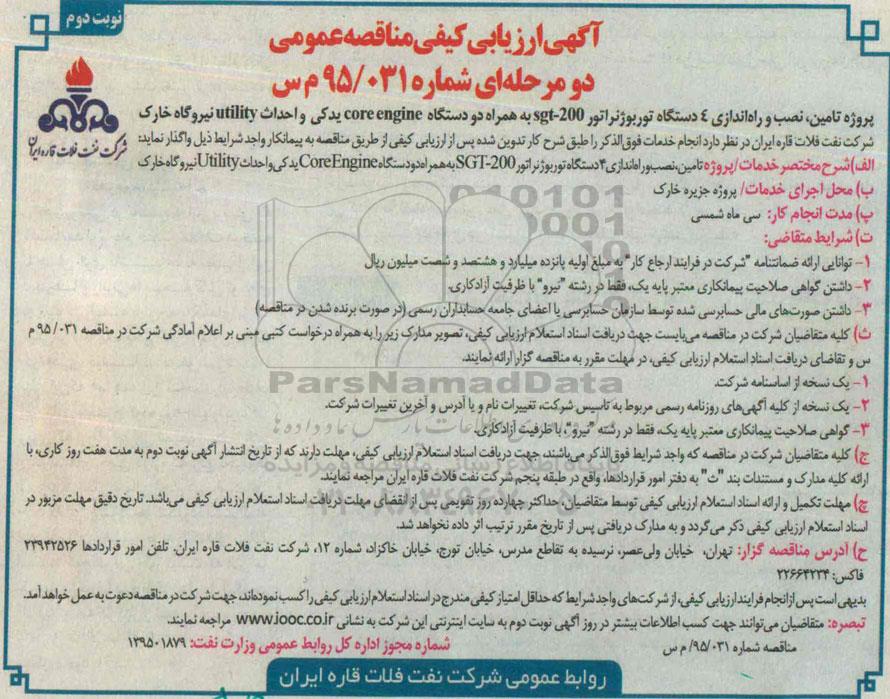 نوبت دوم
آگهی ارزیابی کیفی مناقصه عمومی
دو مرحله‌ای شماره ۹۵/۰۳۱ م س
شرکت نفت فلات قاره ایران
پروژه تامین، نصب و راه‌اندازی ٤ دستگاه توربوژنراتور sgt-200 به همراه دو دستگاه core engine یدکی و احداث utility نیروگاه خارک
شرکت نفت فلات قاره ایران در نظر دارد انجام خدمات فوق‌الذکر را طبق شرح کار تدوین شده پس از ارزیابی کیفی از طریق مناقصه به پیمانکار واجد شرایط ذیل واگذار نماید:
الف) شرح مختصر خدمات/پروژه تامین، نصب و راه‌اندازی ۴ دستگاه توربوژنراتور SGT-200 به همراه دو دستگاه Core Engine یدکی و احداث Utility نیروگاه خارک
ب) محل اجرای خدمات/ پروژه جزیره خارک
پ) مدت انجام کار: سی ماه شمسی
ت) شرایط متقاضی:
۱- توانایی ارائه ضمانتنامه "شرکت در فرایند ارجاع کار" به مبلغ اولیه پانزده میلیارد و هشتصد و شصت میلیون ریال
۲- داشتن گواهی صلاحیت پیمانکاری معتبر پایه یک، فقط در رشته "نیرو" با ظرفیت آزادکاری.
۳- داشتن صورت‌های مالی حسابرسی شده توسط سازمان حسابرسی یا اعضای جامعه حسابداران رسمی (در صورت برنده شدن در مناقصه)
ث) کلیه متقاضیان شرکت در مناقصه می‌بایست جهت دریافت اسناد استعلام ارزیابی کیفی، تصویر مدارک زیر را به همراه درخواست کتبی مبنی بر اعلام آمادگی شرکت در مناقصه ۹۵/۰۳۱ م
س و تقاضای دریافت اسناد استعلام ارزیابی کیفی، در مهلت مقرر به مناقصه گزار ارائه نمایند.
۱- یک نسخه از اساسنامه شرکت.
۲- یک نسخه از کلیه آگهی‌های روزنامه رسمی مربوط به تاسیس شرکت، تغییرات نام و یا آدرس و آخرین تغییرات شرکت.
۳- گواهی صلاحیت پیمانکاری معتبر پایه یک، فقط در رشته "نیرو"، با ظرفیت آزادکاری.
ج) کلیه متقاضیان شرکت در مناقصه که واجد شرایط فوق‌الذکر می‌باشند، جهت دریافت اسناد استعلام ارزیابی کیفی، مهلت دارند که از تاریخ انتشار آگهی نوبت دوم به مدت هفت روز کاری، با
ارائه کلیه مدارک و مستندات بند "ث" به دفتر امور قراردادها، واقع در طبقه پنجم شرکت نفت فلات قاره ایران مراجعه نمایند.
چ) مهلت تکمیل و ارائه اسناد استعلام ارزیابی کیفی توسط متقاضیان، حداکثر چهارده روز تقویمی پس از انقضای مهلت دریافت اسناد استعلام ارزیابی کیفی می‌باشد. تاریخ دقیق مهلت مزبور در
اسناد استعلام ارزیابی کیفی ذکر می‌گردد و به مدارک دریافتی پس از تاریخ مقرر ترتیب اثر داده نخواهد شد.
ح) آدرس مناقصه گزار: تهران، خیابان ولی‌عصر، نرسیده به تقاطع مدرس، خیابان تورج، خیابان خاکزاد، شماره ۱۲، شرکت نفت فلات قاره ایران. تلفن امور قراردادها ۲۳۹۴۲۵۲۶
فاکس: ۲۲۶۶۴۲۳۴
بدیهی است پس از انجام فرایند ارزیابی کیفی، از شرکت‌های واجد شرایط که حداقل امتیاز کیفی مندرج در اسناد استعلام ارزیابی کیفی را کسب نموده‌اند، جهت شرکت در مناقصه دعوت به عمل خواهد آمد.
تبصره: متقاضیان می‌توانند جهت کسب اطلاعات بیشتر در روز آگهی نوبت دوم به سایت اینترنتی این شرکت به نشانی www.iooc.co.ir مراجعه نمایند.
مناقصه شماره ۹۵/۰۳۱/ م س
شماره مجوز اداره کل روابط عمومی وزارت نفت: ۱۳۹۵۰۱۸۷۹
روابط عمومی شرکت نفت فلات قاره ایران
ParsNamadData